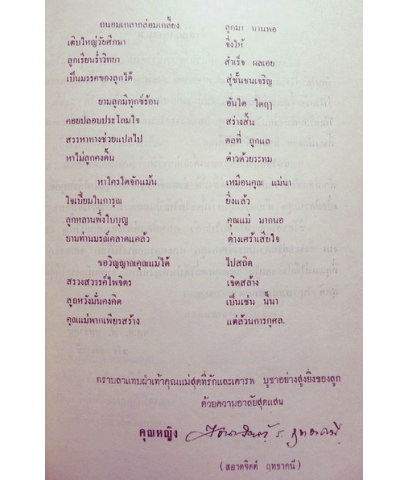 ถนอมเกลากล่อมเกลี้ยง ลูกมา นานพอ
เติบใหญ่วัยศึกษา จึ่งให้
ลูกเรียนร่ำวิทยา สำเร็จ ผลเอย
เป็นมรรคของลูกได้ สู่ขั้นขนเจริญ
ยามลูกมีทุกข์ร้อน อันใด ใดฤๅ
คอยปลอบประโลมใจ สร่างสิ้น
สรรหาทางช่วยแปลไป ดลที่ ถูกแล
หาไม่ลูกคงดิ้น ด่าวด้วยระทม
หาใครใดจักแม้น เหมือนคุณ แม่นา
ใจเปี่ยมในการุณ ยิ่งแล้ว
ลูกหลานพึ่งใบบุญ คุณแม่ มากนอ
ยามท่านมรณ์คลาดแคล้ว ต่างเศร้าเสียใจ
ขอวิญญาณคุณแม่ได้ ไปสถิต
สรวงสวรรค์ไพจิตร เจิดสล้าง
ลูกหวังมั่นคงคิด เป็นเช่น นั้นนา
คุณแม่พากเพียรสร้าง แต่ล้วนการกุศล.
กราบลาแทบฝ่าเท้าคุณแม่สุดที่รักและเคารพ บูชาอย่างสูงยิ่งของลูก
ด้วยความอาลัยสุดแสน
คุณหญิง
(สอาดจิตต์ ฤทธาคนี)